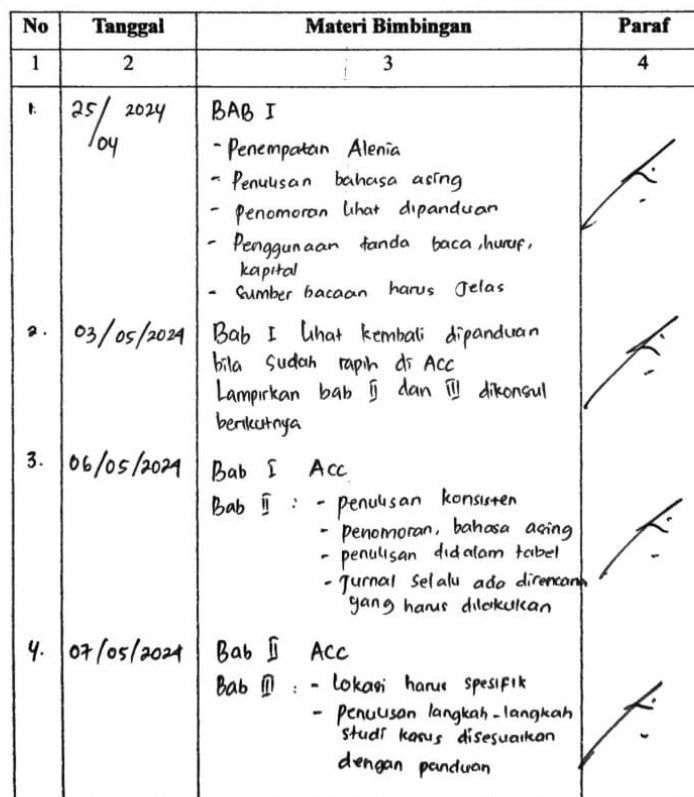 No Tanggal Materi Bimbingan Paraf
1 2 3 4
1. 25/04 2024 BAB I
- Penempatan Alenia
- Penulisan bahasa asing
- Penomoran lihat dipanduan
- Penggunaan tanda baca, huruf,
kapital
- Sumber bacaan harus Jelas
2. 03/05/2024 Bab I lihat kembali dipanduan
bila sudah rapih di Acc
Lampirkan bab II dan III dikonsul
berikutnya
3. 06/05/2024 Bab I Acc
Bab II : - penulisan konsisten
- penomoran, bahasa asing
- penulisan didalam tabel
- Jurnal selalu ada direncana
yang harus dilakukan
4. 07/05/2024 Bab II ACC
Bab III : - Lokasi harus spesifik
- penulisan langkah-langkah
studi kasus disesuaikan
dengan panduan